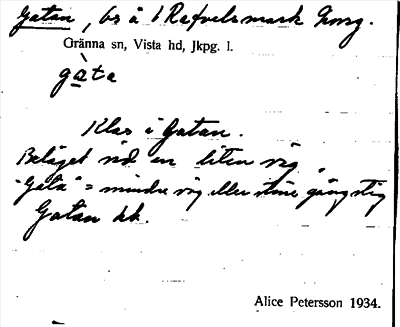 Gatan, bs å 1 Refvelsmark
Gränna sn, Vista hd, Jkpg. l.
gàta
Klas i Gatan.
Beläget vid en liten väg
"Gata" = mindre väg eller större gångstig
Gatan kk.
Alice Petersson 1934.